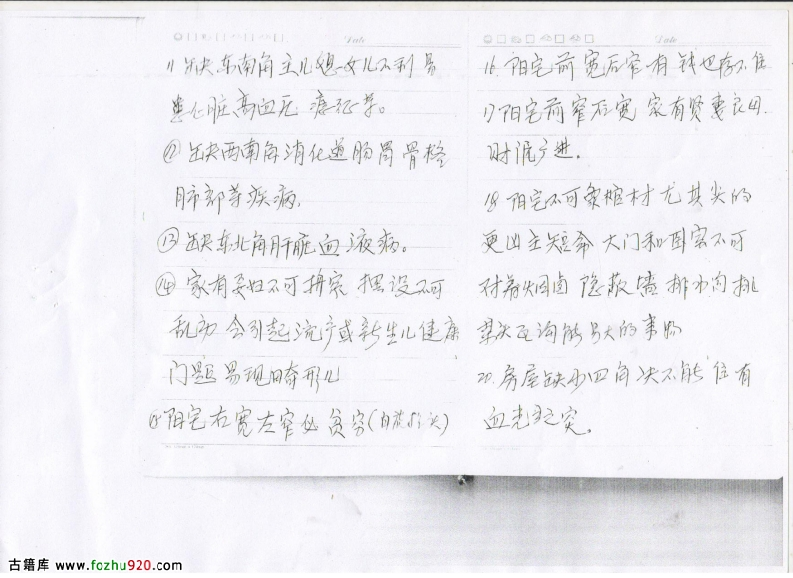 11 缺东南角主儿媳女儿不利易
患心脏高血压 癌症等。
⑫ 缺西南角消化道肠胃骨格
肺部等疾病。
⑬ 缺东北角肝脏血液病。
⑭ 家有孕妇不可搬家 摆设不可
乱动 会引起流产或新生儿健康
问题 易现畸形儿
15 阳宅右宽左窄必贫穷(
Date
16. 阳宅前宽后窄有钱也存不住
17 阳宅前窄后宽 家有贤妻良田.
财源广进.
18. 阳宅不可象棺材尤其尖的
更凶主短命 大门和
对着烟囱 隐蔽 排水沟
的事物
20. 房屋缺少四角决不能住有
血光之灾。
古籍库 www.fozhu920.com